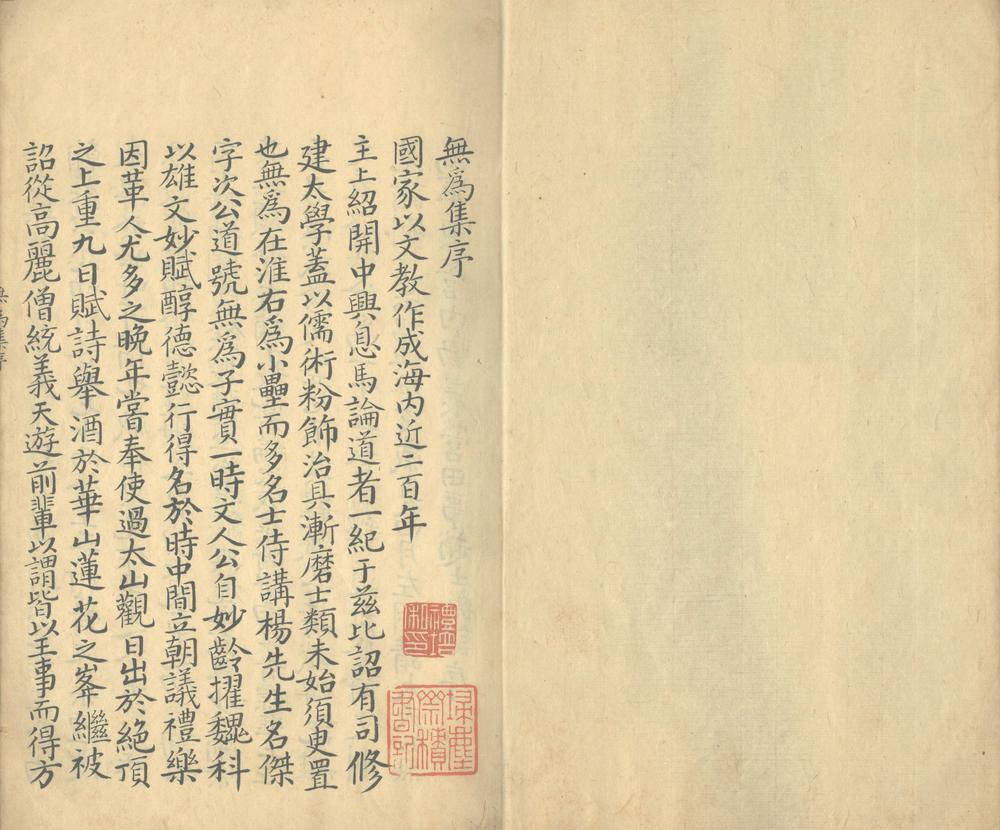 無爲集序
國家以文教作成海内近二百年
主上紹開中興息馬論道者一紀于兹比詔有司修
建太學蓋以儒術粉飾治具漸磨士類未始須臾置
也無爲在淮右爲小壘而多名士侍講楊先生名傑
字次公道號無爲子實一時文人公自妙齡擢巍科
以雄文妙賦醇德懿行得名於時中間立朝議禮樂
因革人尤多之晚年甞奉使過太山觀日出於絶頂
之上重九日賦詩舉酒於華山蓮花之峯繼被
詔從高麗僧統義天遊前輩以謂皆以王事而得方
無爲集序